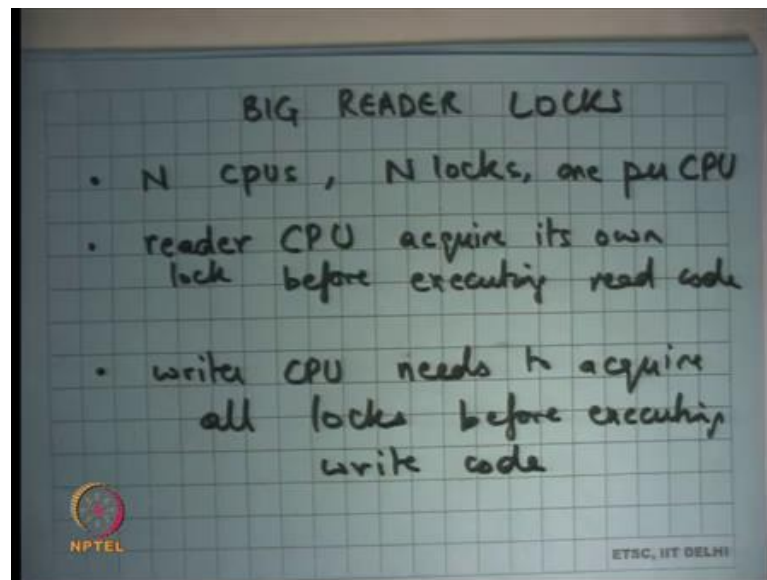 BIG READER LOCKS
• N CPUs, N locks, one per CPU
• reader CPU acquire its own
lock before executing read code
• writer CPU needs to acquire
all locks before executing
write code
NPTEL
ETSC, IIT DELHI